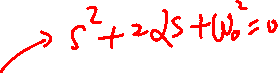 s² + 2αs + ω₀² = 0